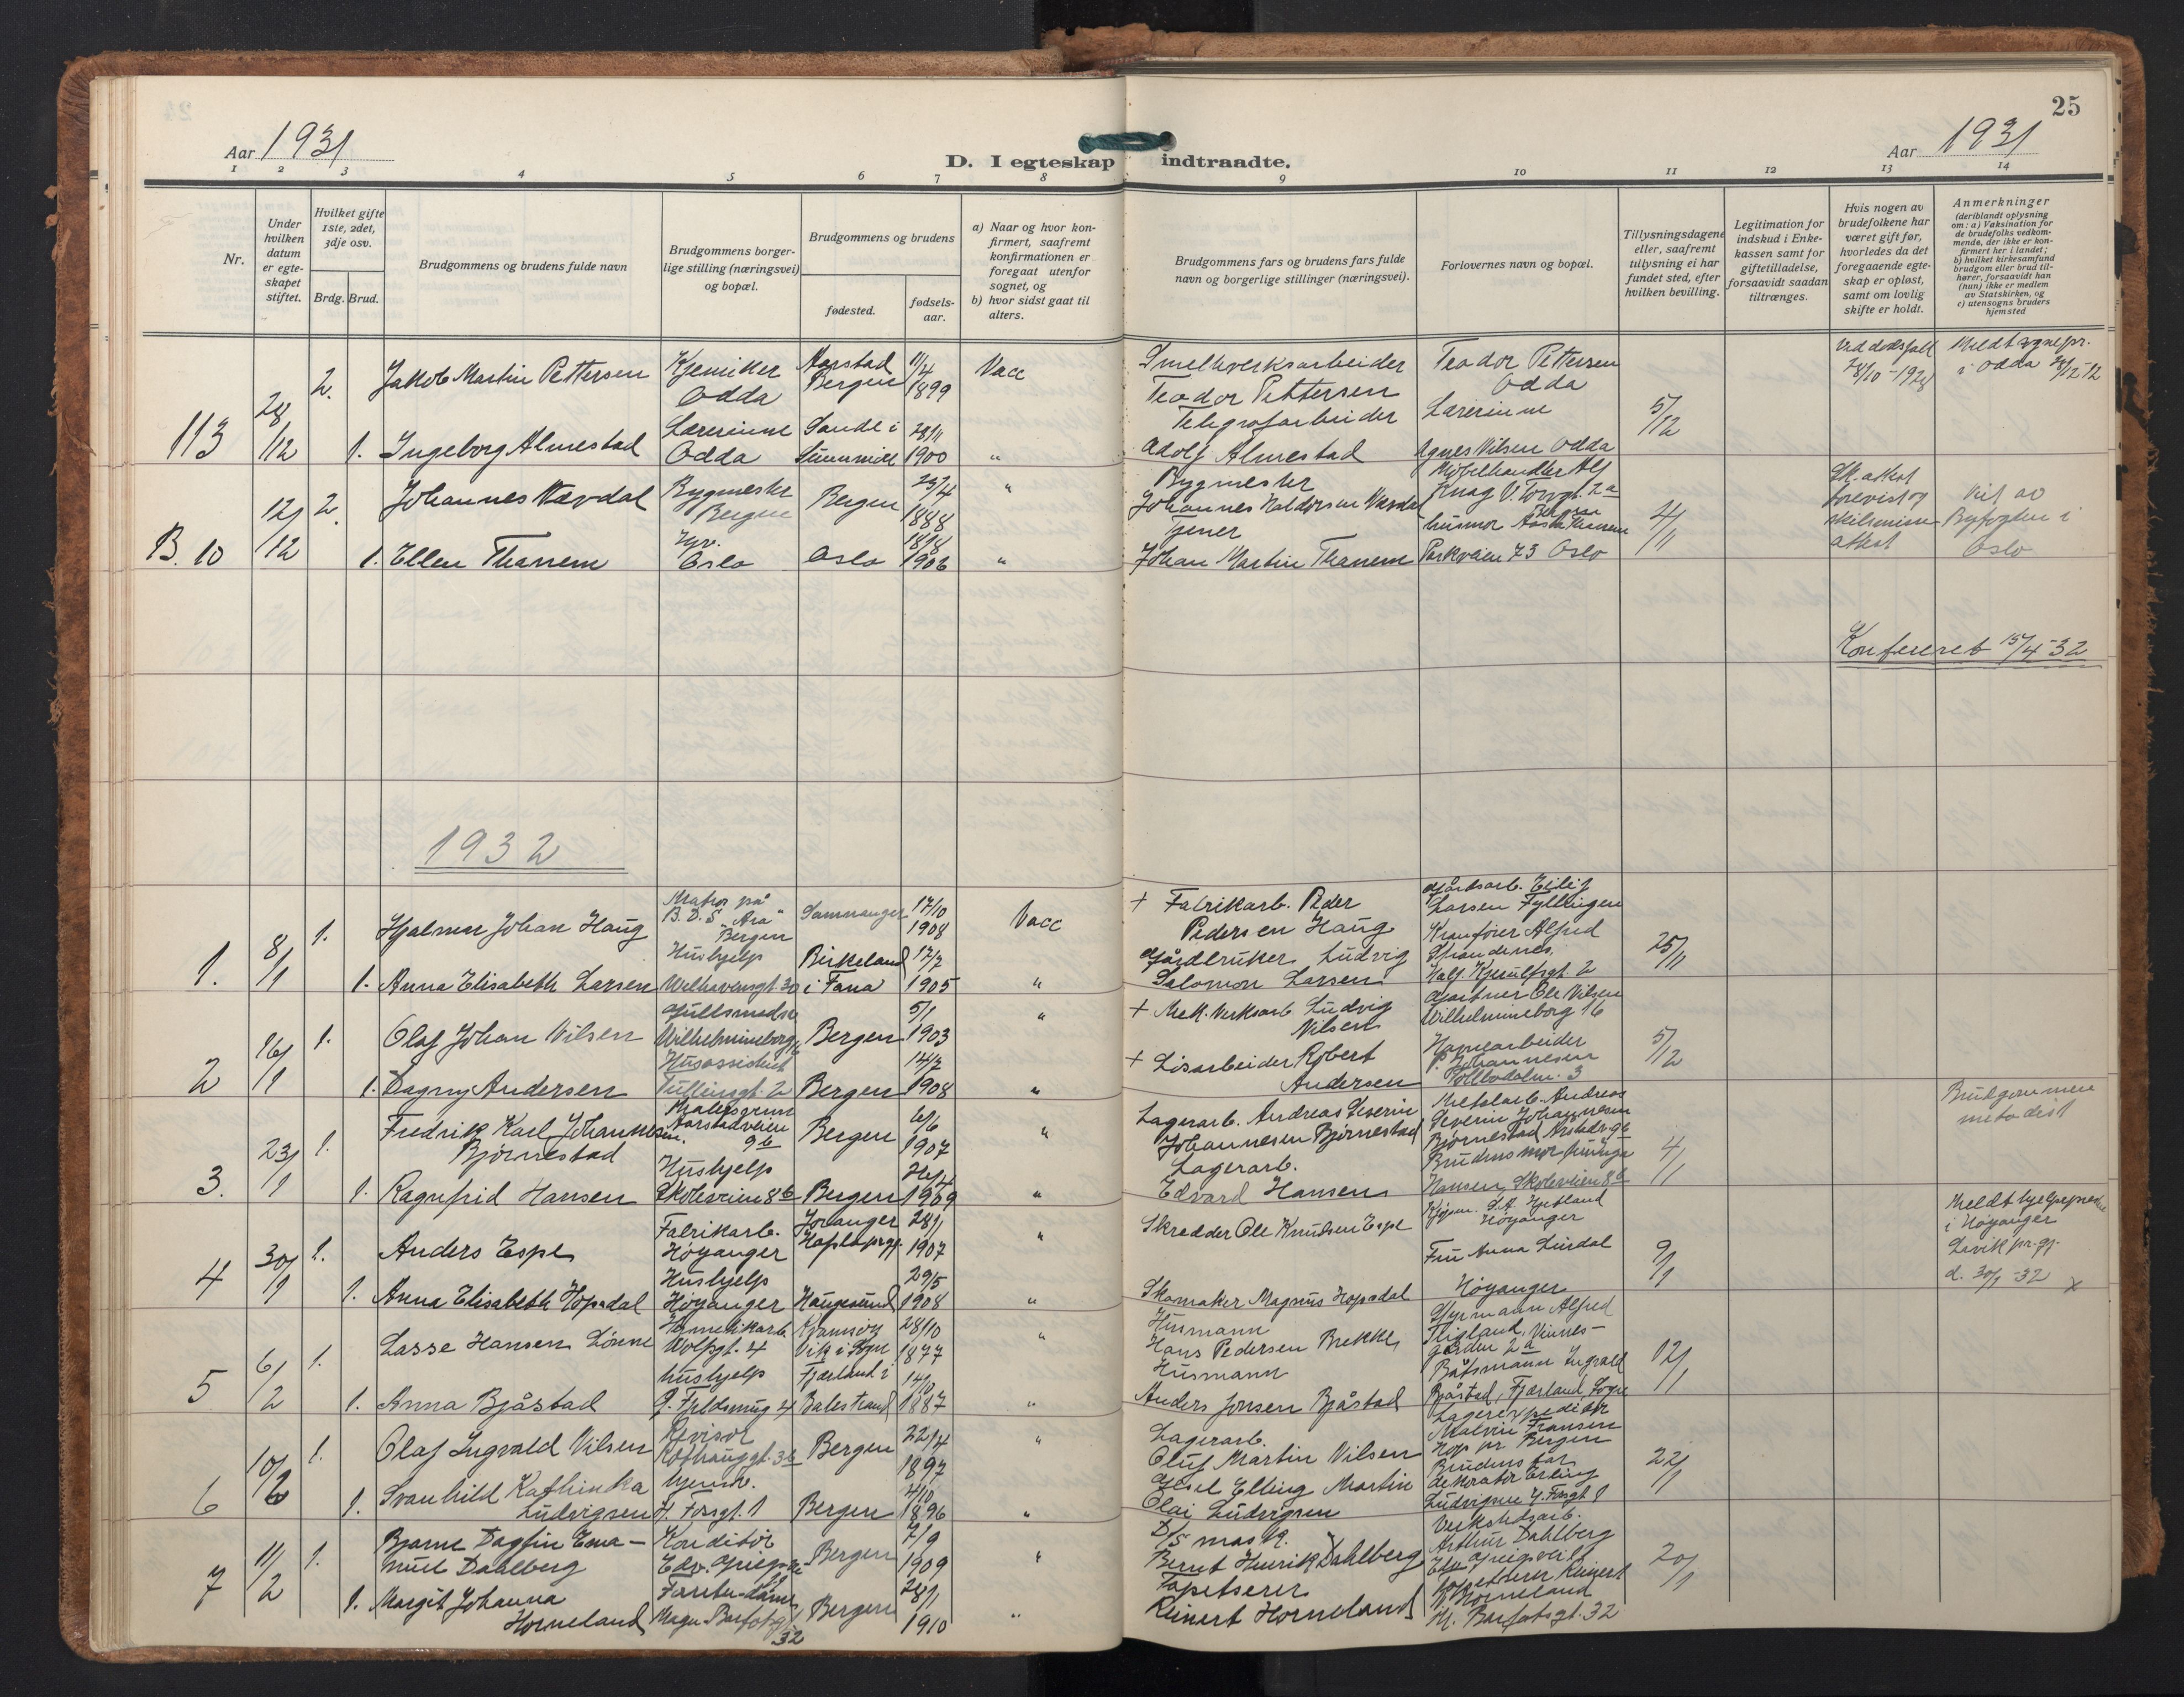 25
Aar 1931
Aar 1931
D. I egteskap indtraadte.
1 2 3 4 5 6 7 8 9 10 11 12 13 14
Nr.
Under hvilken datum er egteskapet stiftet.
Hvilket gifte 1ste, 2det, 3dje osv.
Brdg. Brud.
Brudgommens og brudens fulde navn
Brudgommens borgerlige stilling (næringsvei) og bopæl.
Brudgommens og brudens
fødested.
fødselsaar.
a) Naar og hvor konfirmert, saafremt konfirmationen er foregaat utenfor sognet, og
b) hvor sidst gaat til alters.
Brudgommens fars og brudens fars fulde navn og borgerlige stillinger (næringsvei).
Forlovernes navn og bopæl.
Tillysningsdagene eller, saafremt tillysning ei har fundet sted, efter hvilken bevilling.
Legitimation for indskud i Enkekassen samt for giftetilladelse, forsaavidt saadan tiltrænges.
Hvis nogen av brudefolkene har været gift før, hvorledes da det foregaaende egteskap er opløst, samt om lovlig skifte er holdt.
Anmerkninger (deriblandt oplysning om: a) Vaksination for de brudefolks vedkommende, der ikke er konfirmert her i landet; b) hvilket kirkesamfund brudgom eller brud tilhører, forsaavidt han (hun) ikke er medlem av Statskirken, og c) utensogns bruders hjemsted
113 28/12 2. Jakob Martin Pettersen Kjemiker Odda Aarstad Bergen 11/4 1899 Vacc Smelteverksarbeider Teodor Pettersen Teodor Pettersen Odda 5/12 Ved dødsfall 28/10-1928 Meldt sognepr. i Odda
1. Ingeborg Almestad Lærerinne Odda Sande i Sunnmøre 28/11 1900 " Telegrafarbeider Adolf Almestad Lærerinne Agnes Nilsen Odda
B. 10 12/12 2. Johannes Nævdal Bygmester Bergen Bergen 23/4 1888 " Bygmester Johannes Haldorsen Nævdal Møbelhandler Alf Knag V. Torvgt. 2a Bergen 4/11 Sk. attest forevist og skilsmisse attest Viet av Byfogden i Oslo
1. Ellen Thanem Oslo Oslo 1906 " Tjener Johan Martin Thanem husmor Aasta Thanem Parkveien 73 Oslo
Konfereret 15/4-32
1932
1. 8/1 1. Hjalmar Johan Haug Matros på B.D.S. "Ara" Bergen Samnanger 17/10 1908 Vacc + Fabrikarb. Peder Pedersen Haug Gårdsarb. Eilif Larsen Fyllingen 25/11
1. Anna Elisabeth Larsen Hushjelp Welhavensgt. 30 Birkeland i Fana 17/7 1905 " Gårdbruker Ludvig Salomon Larsen Kranfører Alfred Strandenes. Half. Kjerulfsgt. 2
2 16/1 1. Olaf Johan Nilsen Gullsmedsv. Wilhelmineborg 16 Bergen 5/1 1903 " + Mek. Verksarb. Ludvig Nilsen Gartner Ole Nilsen Wilhelmineborg 16 5/12
1. Dagny Andersen Husassistent Tullinsgt. 2 Bergen 14/7 1908 " + Lisarbeider Robert Andersen Havnearbeider P. Johannesen 3
3. 23/1 1. Fredrik Karl Johannesen Bjørnestad Malersvenn Aarstadveien 9b Bergen 6/6 1907 " Lagerarb. Andreas Severin Johannesen Bjørnestad Metalarb. Andreas Severin Johannesen Bjørnestad Årstadv. 9b 4/1 Brudgommen metodist
1. Ragnfrid Hansen Hushjelp Skoleveien 8b Bergen 1909 " Lagerarb. Edvard Hansen Brudens mor Hansen, Skoleveien 8b
4 30/1 1. Anders Espe Fabrikarb. Høyanger Joranger Hafslo prgj. 28/1 1907 " Skredder Ole Knudsen Espe Kjøpm. Høyanger 9/1 Meldt hjelpeprest i Høyanger Lavik pr.gj. d. 30/1-32 x
1. Anna Elisabeth Hopsdal Hushjelp Høyanger Haugesund 29/5 1908 " Skomaker Magnus Hopsdal Fru Anna Lindal Høyanger
5 6/2 1. Lasse Hansen Lønne Hermetikkarb. Wolfsgt. 4 Kvamsøy Vik i Sogn 28/10 1877 " Husmann Hans Pedersen Brekke Styrmann Alfred Fligland, Vinnesgården 2a 12/1
1. Anna Bjåstad hushjelp 4 Fjærland i Balestrand 14/10 1887 " Husmann Anders Jonsen Bjåstad Båtsmann Ingvald Bjåstad, Fjærland, Sogn
6 10/2 1. Olaf Ingvald Nilsen Revisor Rothauggt. 3b Bergen 22/4 1897 " Lagerarb. Oluf Martin Nilsen Lagerexpeditør Malvin Fransen Hop pr Bergen 22/1
1. Svanhild Kathinka Ludvigsen hjemv. H. Fossgt. 1 Bergen 4/10 1896 " Elling Martin Olai Ludvigsen Brudens far dekoratør Erling Ludvigsen H. Fossgt 1
7 11/2 1. Bjarne Dagfin Emanuel Dahlberg Konditor Edv. Griegsvei Bergen 7/9 1909 " D/S mask. Bernt Henrik Dahlberg Verkstedsarb. Arthur Dahlberg Edv Griegsvei 20/1
1. Margit Johanna Horneland Magn. Barfotsgt. 32 Bergen 28/1 1910 " Tapetserer Reinert Horneland Tapetserer Reinert Horneland M. Barfotsgt. 32